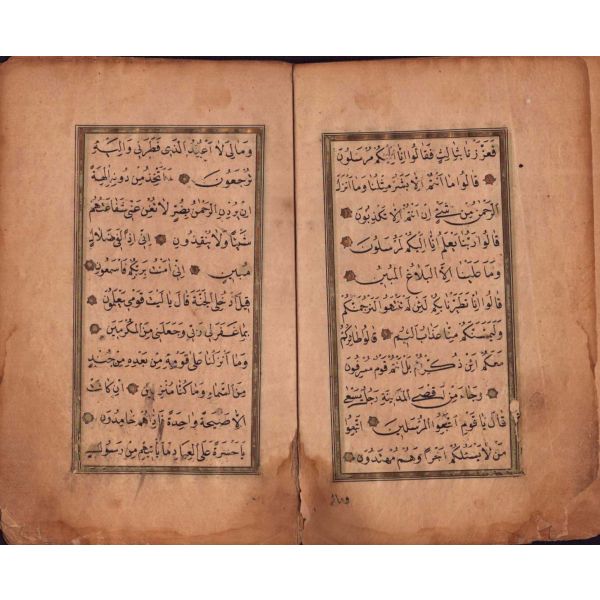 فَعَزَّزْنَا بِثَالِثٍ فَقَالُوا اِنَّا اِلَيْكُمْ مُرْسَلُونَ
قَالُوا مَا اَنْتُمْ اِلَّا بَشَرٌ مِثْلُنَا وَمَا اَنْزَلَ
الرَّحْمٰنُ مِنْ شَيْءٍ اِنْ اَنْتُمْ اِلَّا تَكْذِبُونَ
قَالُوا رَبُّنَا يَعْلَمُ اِنَّا اِلَيْكُمْ لَمُرْسَلُونَ
وَمَا عَلَيْنَا اِلَّا الْبَلَاغُ الْمُبِينُ
قَالُوا اِنَّا تَطَيَّرْنَا بِكُمْ لَئِنْ لَمْ تَنْتَهُوا لَنَرْجُمَنَّكُمْ
وَلَيَمَسَّنَّكُمْ مِنَّا عَذَابٌ اَلِيمٌ قَالُوا طَائِرُكُمْ
مَعَكُمْ اَئِنْ ذُكِّرْتُمْ بَلْ اَنْتُمْ قَوْمٌ مُسْرِفُونَ
وَجَاءَ مِنْ اَقْصَى الْمَدِينَةِ رَجُلٌ يَسْعٰى
قَالَ يَا قَوْمِ اتَّبِعُوا الْمُرْسَلِينَ اتَّبِعُوا
مَنْ لَا يَسْئَلُكُمْ اَجْرًا وَهُمْ مُهْتَدُونَ
وَمَالِيَ
وَمَا لِيَ لَا اَعْبُدُ الَّذِي فَطَرَنِي وَاِلَيْهِ
تُرْجَعُونَ ءَاَتَّخِذُ مِنْ دُونِهِ اٰلِهَةً
اِنْ يُرِدْنِ الرَّحْمٰنُ بِضُرٍّ لَا تُغْنِ عَنِّي شَفَاعَتُهُمْ
شَيْئًا وَلَا يُنْقِذُونِ اِنِّي اِذًا لَفِي ضَلَالٍ
مُبِينٍ اِنِّي اٰمَنْتُ بِرَبِّكُمْ فَاسْمَعُونِ
قِيلَ ادْخُلِ الْجَنَّةَ قَالَ يَا لَيْتَ قَوْمِي يَعْلَمُونَ
بِمَا غَفَرَ لِي رَبِّي وَجَعَلَنِي مِنَ الْمُكْرَمِينَ
وَمَا اَنْزَلْنَا عَلٰى قَوْمِهِ مِنْ بَعْدِهِ مِنْ جُنْدٍ
مِنَ السَّمَاءِ وَمَا كُنَّا مُنْزِلِينَ اِنْ كَانَتْ
اِلَّا صَيْحَةً وَاحِدَةً فَاِذَا هُمْ خَامِدُونَ
يَا حَسْرَةً عَلَى الْعِبَادِ مَا يَأْتِيهِمْ مِنْ رَسُولٍ